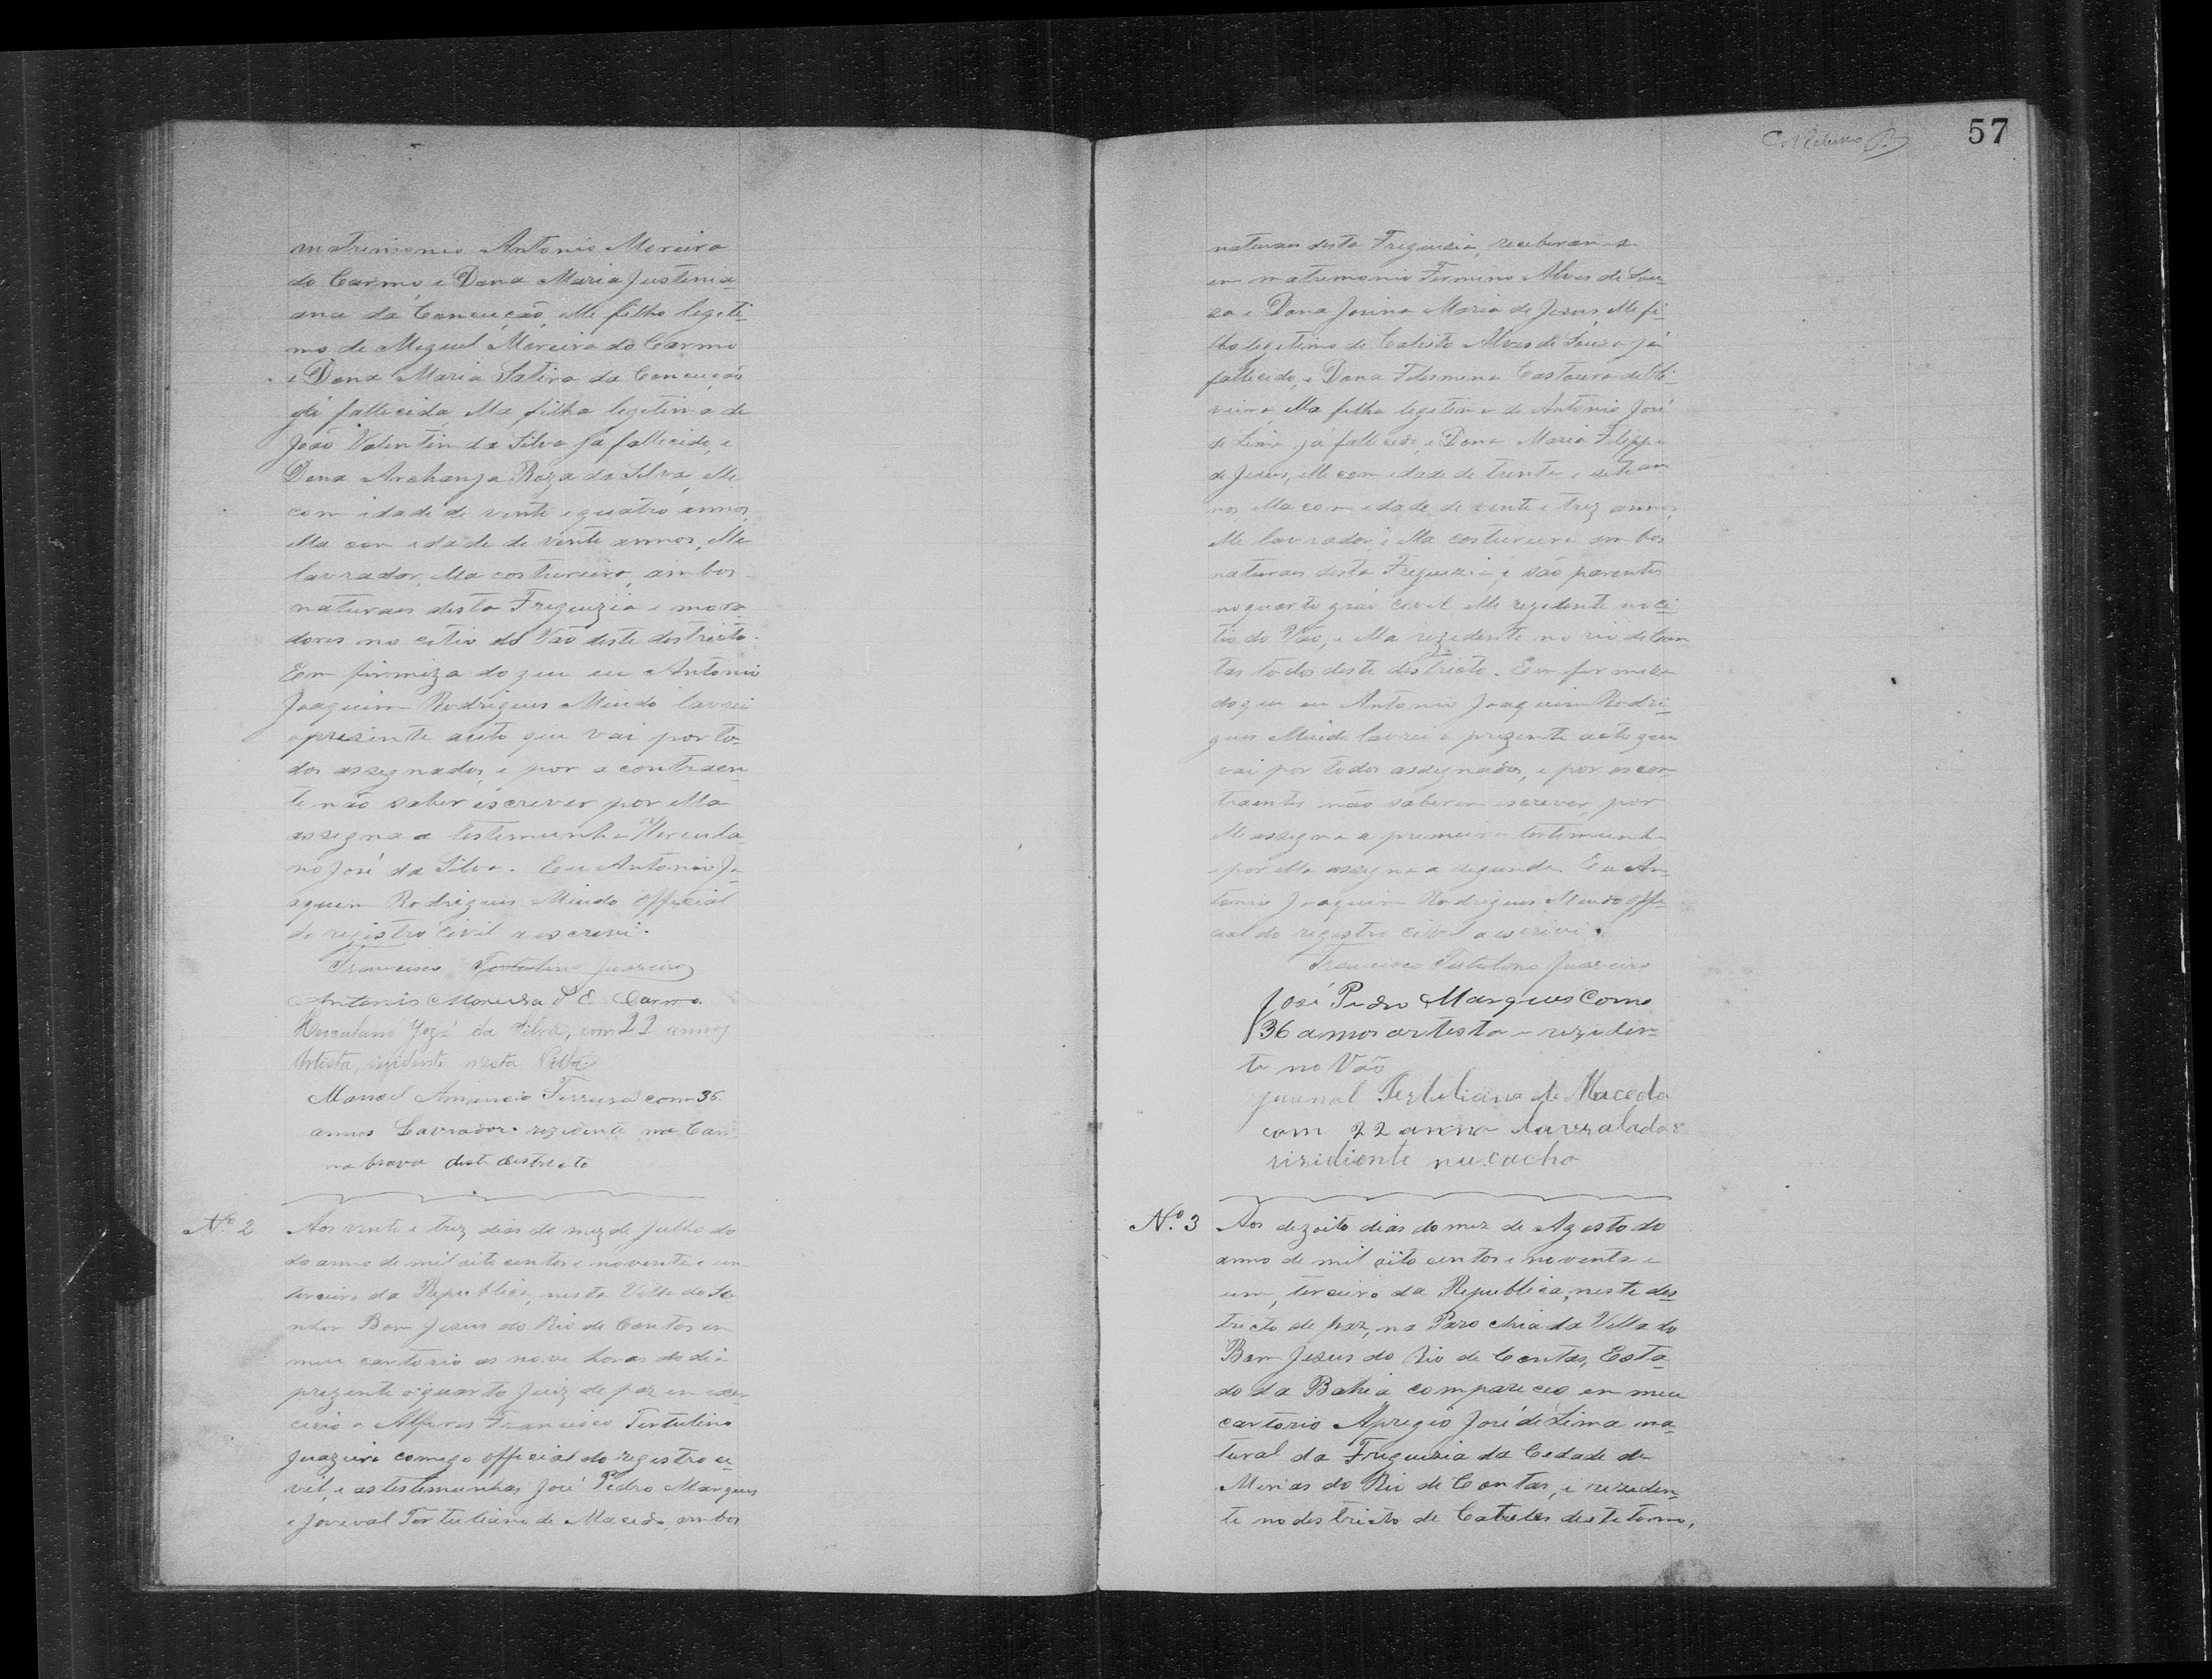 matrimonio Antonio Moreira
do Carmo e Dona Maria Justinia-
ana da Conceição, elle filho legeti-
mo de Meguel Moreira do Carmo
e Dona Maria Satira da Conceição
já fallecida, ella filha legetima de
João Valentin da Silva já fallecido, e
Dona Archanja Roza da Silva, elle
com idade de vinte e quatro annos,
ella com idade de vinte annos, elle
lavrador, ella costureira, ambos
naturaes desta Freguezia e mora
dores no citio do Vão deste destricto.
Em firmeza do que eu Antonio
Joaquim Rodrigues Miudo lavrei
o presente auto que vai por to-
dos assegnados, e por a contraen-
te não saber escrever por ella
assegna a testemunha Hercula-
no José da Silva. Eu Antonio Jo-
aquim Rodrigues Miudo official
do registro civil a escrevi.
Francisco Tertulino Juazeiro
Antonio Moreira d C Carmo.
Herculano Jozé da Silva, com 22 annos
Artista, rezidente nesta Villa
Manoel Amancio Ferreira com 36.
annos Lavrador. rezidente na Can
nabrava deste destricto
Nº 2 Aos vinte e trez dias do mez de Julho do
do anno de mil oito centos e noventa e um
terceiro da Republica, nesta Villa do Se
nhor Bom Jesus do Rio de Contas em
meu cartorio as nove horas do dia
prezente o quarto Juiz de paz em exer
cicio o Alferes Francisco Tertulino
Juazeiro comego official do registro ci-
vil, e as testemunhas José Pedro Marques
e Joveval Tertuliano de Macedo, ambos
57
naturaes desta Freguezia, receberam-se
em matremonio Fermino Alves de Sou-
sa e Dona Jovina Maria de Jezus, elle fi-
lho legetimo de Calisto Alves de Souza já
fallecido, e Dona Felesmina Castoura de Oli-
veira, ella filha legetima de Antonio José
de Lima já fallecido, e Dona Maria Felippa
de Jesus, elle com edade de trinta e sete an
nos, ella com edade de vinte e trez annos,
elle lavrador, e ella costureira ambos
naturaes desta Freguezia, e são parentes
no quarto gráo civel, elle rezidente no ci-
tio do Vão, e ella rezedente no rio de Con-
tas todos deste destricto. Em firmeza
do que eu Antonio Joaquim Rodri-
gues Miudo lavrei o prezente auto que
vai por todos assegnados, e por os con
traentes não saberem escrever, por
elle assegna a premeira testemunha
e por ella assegna a segunda. Eu An-
tonio Joaquim Rodrigues Miudo offi-
cial do registro civil a escrivi.
Francisco Tertulono Juazeiro
José Pedro Marques Como
36 annos artista e reziden-
te no Vão
juvenal Tertuliano de Macedo
com 22 anno lavralador
risidiente nu cacho
Nº. 3 Aos dezoito dias do mez de Agosto do
anno de mil oito centos e noventa e
um, terceiro da Republica, neste des
tricto de paz, na Parochia da Villa do
Bom Jesus do Rio de Contas, Esta-
do da Bahia compareceo em meu
cartorio Apregio José de Lima na-
tural da Freguezia da Cedade de
Minas do Rio de Contas, e reseden-
te no destricto de Catulés deste termo,